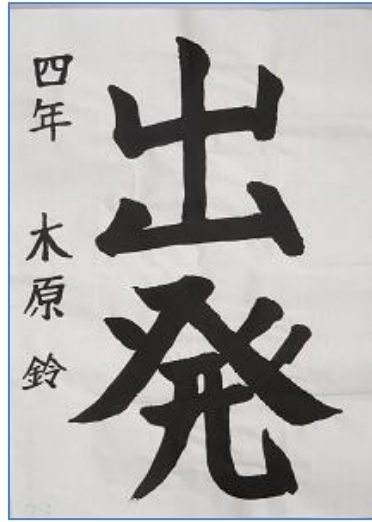 出発
四年 木原 鈴